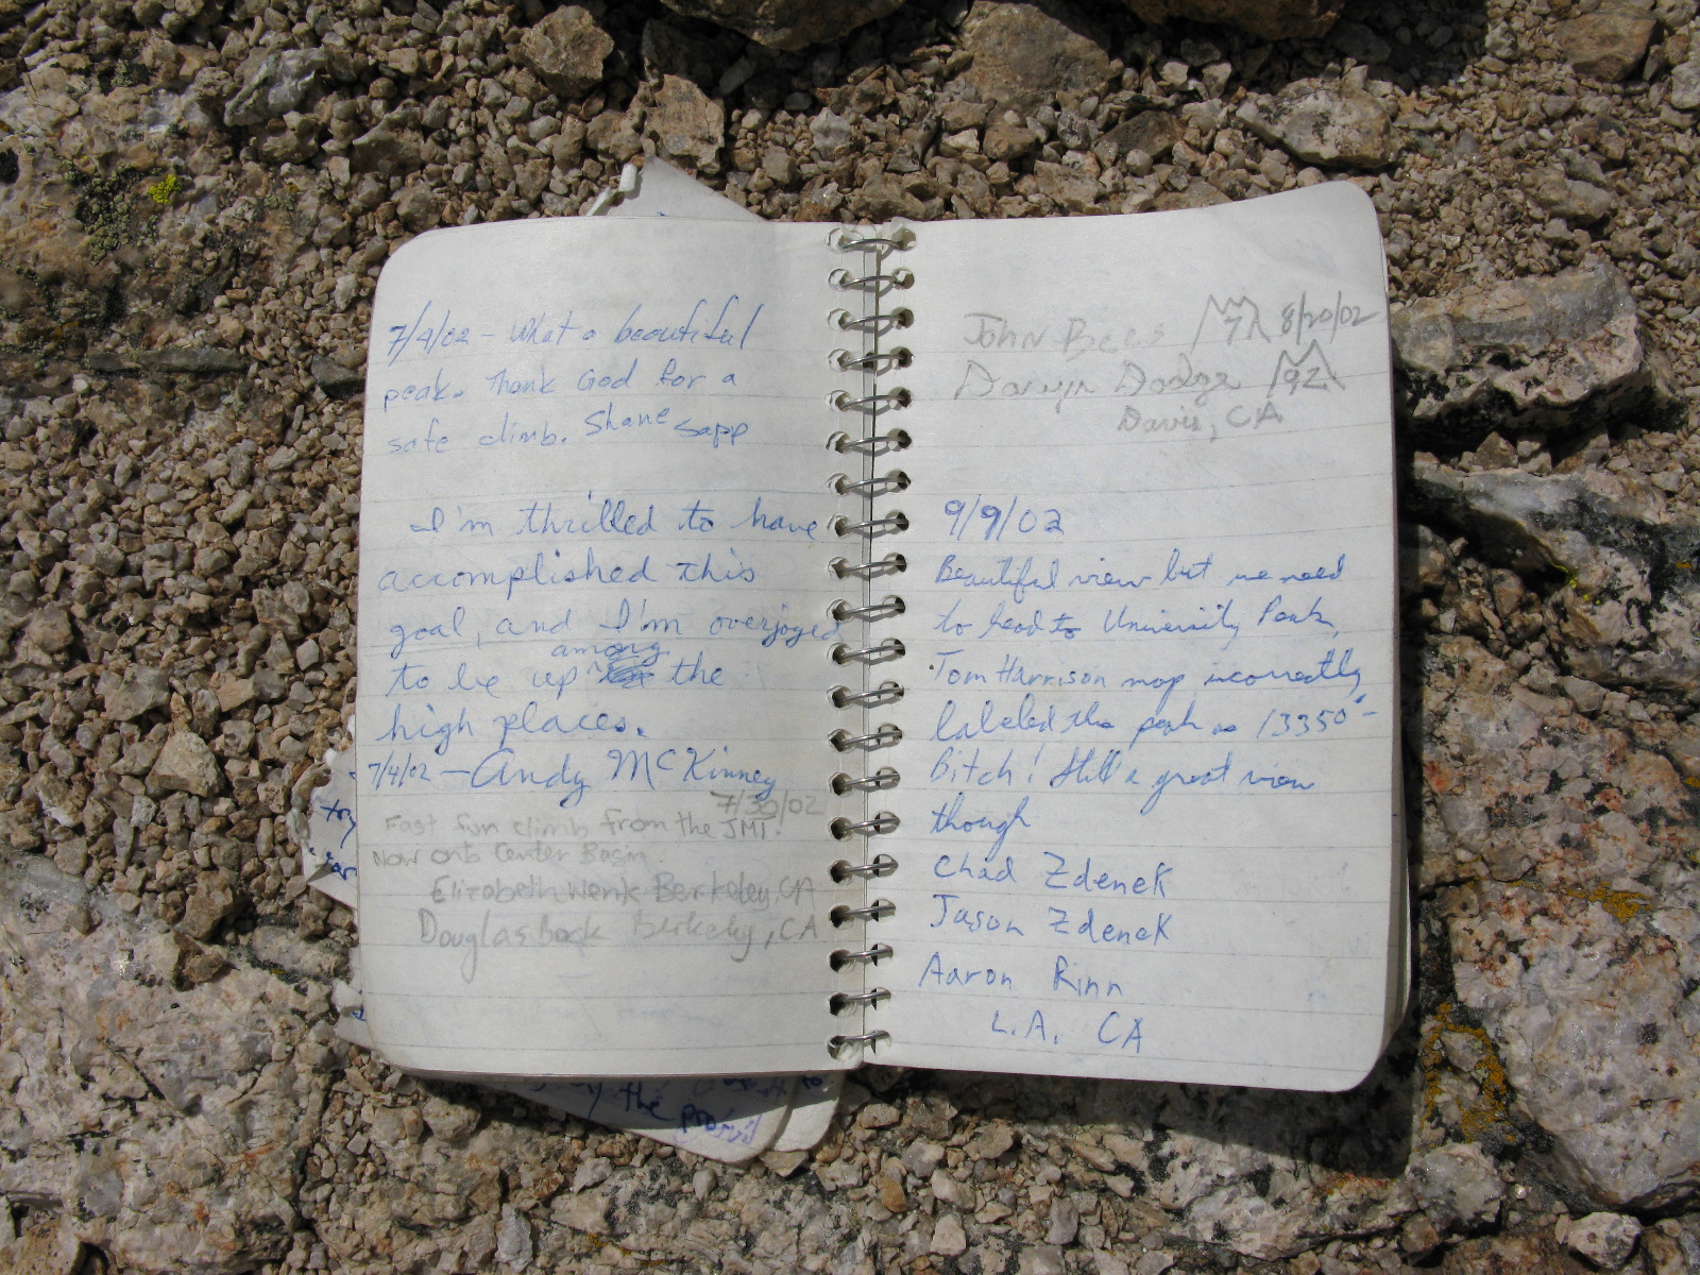 7/4/02 - What a beautiful
peak. Thank God for a
safe climb. Shane Sapp
I'm thrilled to have
accomplished this
goal, and I'm overjoyed
among
to be up the
high places.
7/4/02 - Andy McKinney
7/30/02
Fast fun climb from the JMT.
Now onto Center Basin
Elizabeth Wenk Berkeley, CA
Douglas Bock Berkeley, CA
John 7 8/20/02
Dodge 92
Davis, CA
9/9/02
Beautiful view but we need
to head to University Peak,
Tom Harrison map incorrectly
labeled this peak as 13350' -
Bitch! Still a great view
though
Chad Zdenek
Jason Zdenek
Aaron Rinn
L.A. CA
the